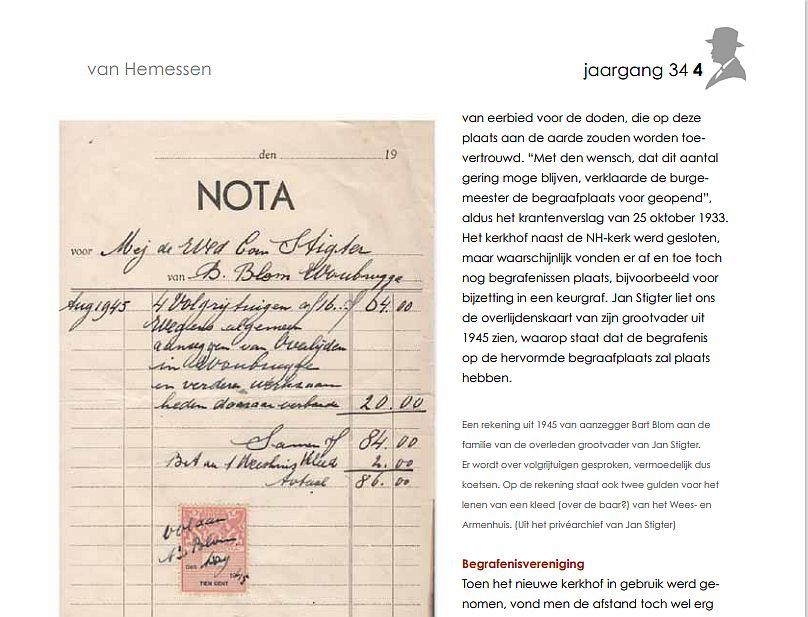 van Hemessen
jaargang 34 4
den 19
NOTA
voor Mej de Wed Corn Stigter
van B. Blom Woubrugge
Aug 1945 4 Volgrijtuigen a f 16.- f 64.00
Wegens algemeen
aanzeggen van Overlijden
in Woubrugge
en verdere werkzaam
heden daaraan verbonden 20.00
Samen f 84.00
Bet aan 1 Weeshuis Kleed 2.00
Totaal 86.00
Voldaan
B Blom
TIEN CENT
van eerbied voor de doden, die op deze
plaats aan de aarde zouden worden toe-
vertrouwd. “Met den wensch, dat dit aantal
gering moge blijven, verklaarde de burge-
meester de begraafplaats voor geopend”,
aldus het krantenverslag van 25 oktober 1933.
Het kerkhof naast de NH-kerk werd gesloten,
maar waarschijnlijk vonden er af en toe toch
nog begrafenissen plaats, bijvoorbeeld voor
bijzetting in een keurgraf. Jan Stigter liet ons
de overlijdenskaart van zijn grootvader uit
1945 zien, waarop staat dat de begrafenis
op de hervormde begraafplaats zal plaats
hebben.
Een rekening uit 1945 van aanzegger Bart Blom aan de
familie van de overleden grootvader van Jan Stigter.
Er wordt over volgrijtuigen gesproken, vermoedelijk dus
koetsen. Op de rekening staat ook twee gulden voor het
lenen van een kleed (over de baar?) van het Wees- en
Armenhuis. (Uit het privéarchief van Jan Stigter)
Begrafenisvereniging
Toen het nieuwe kerkhof in gebruik werd ge-
nomen, vond men de afstand toch wel erg